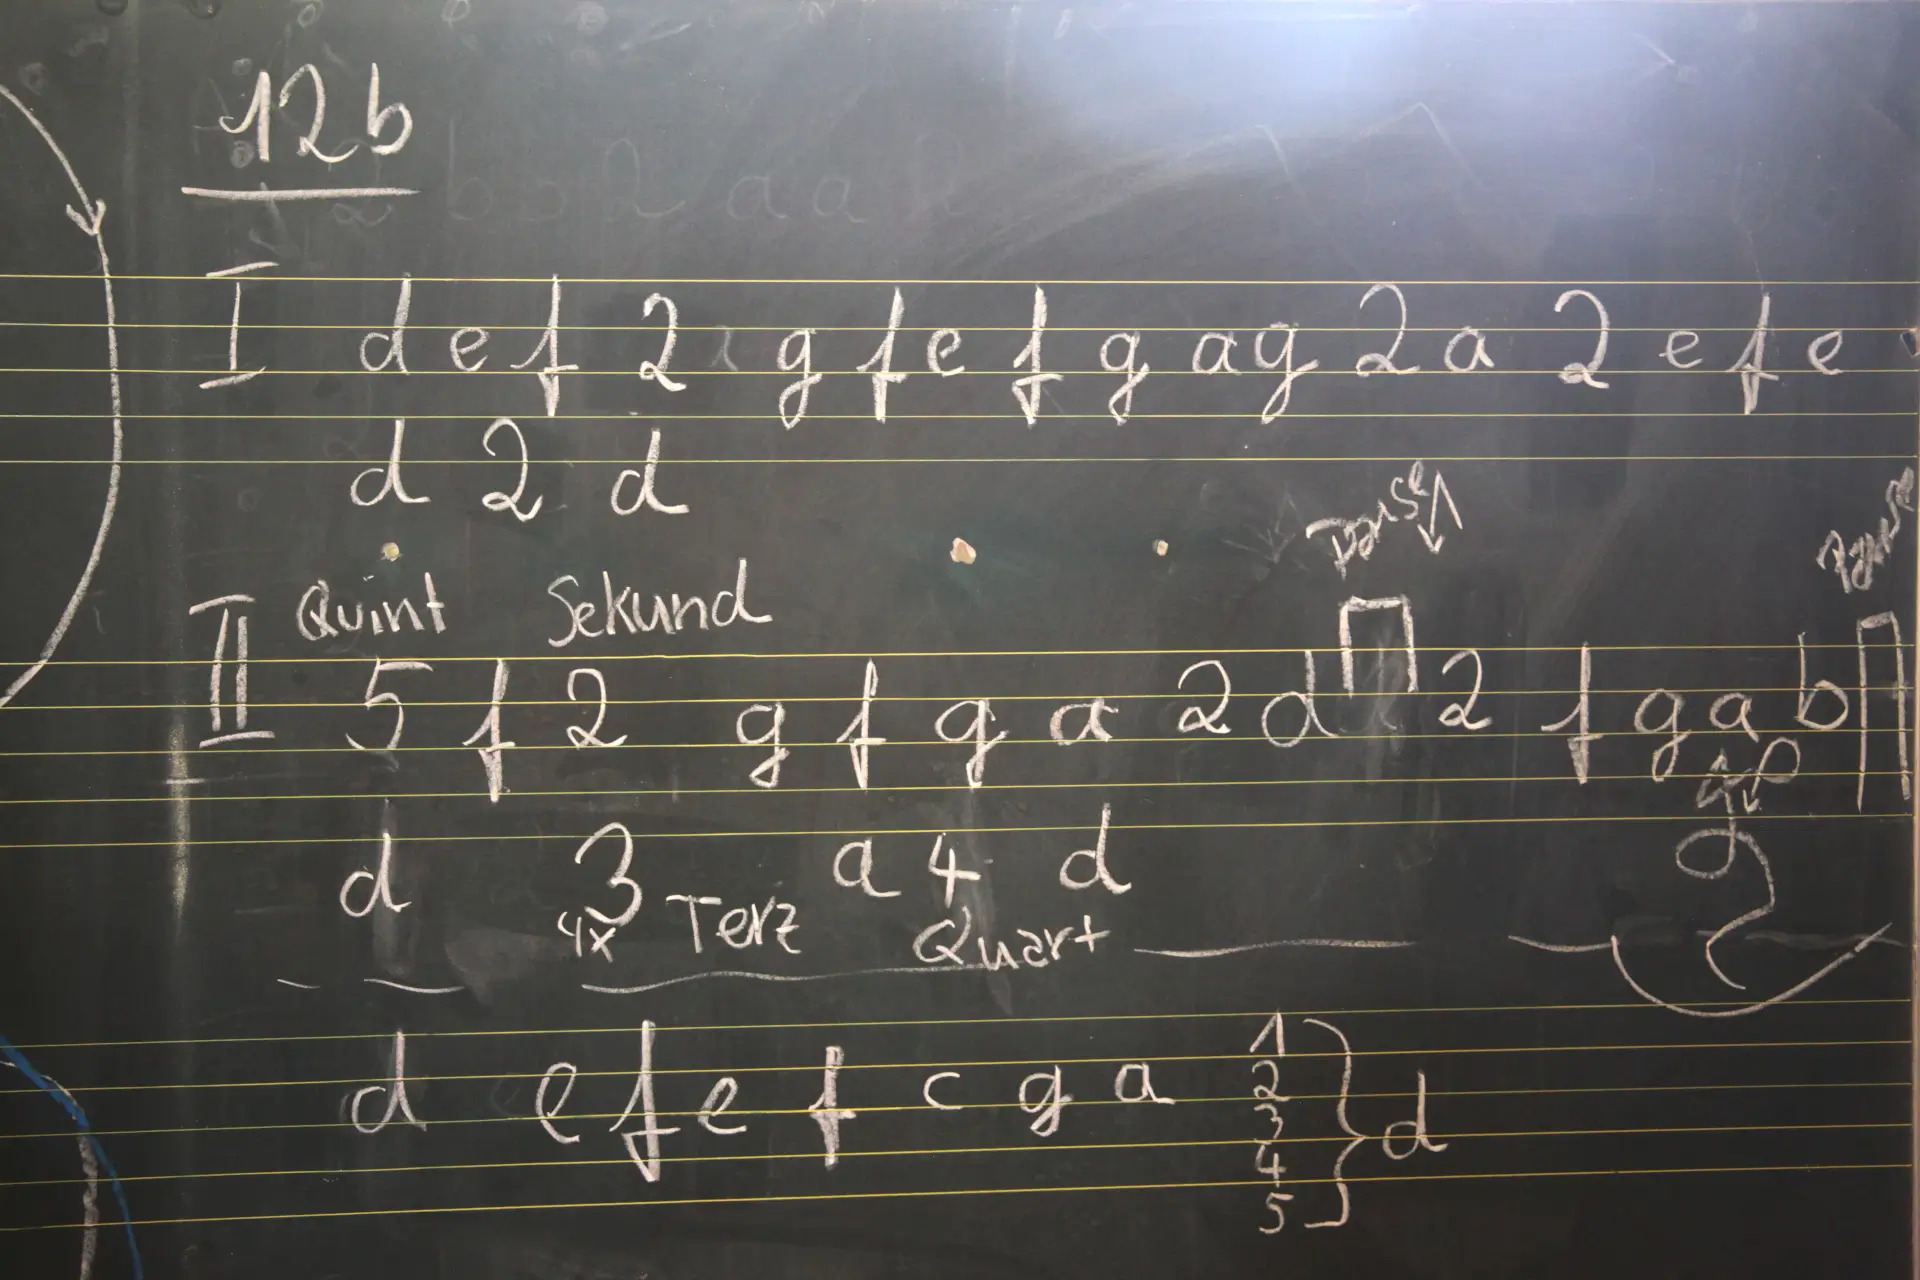 12b
I d e f 2 g f e f g a g 2 a 2 e f e
d 2 d
Pause
Pause
Quint Sekund
II 5 f 2 g f g a 2 d 2 f g a b
g
d 3 a 4 d
4x Terz Quart
d e f e f c g a 1 2 3 4 5 } d